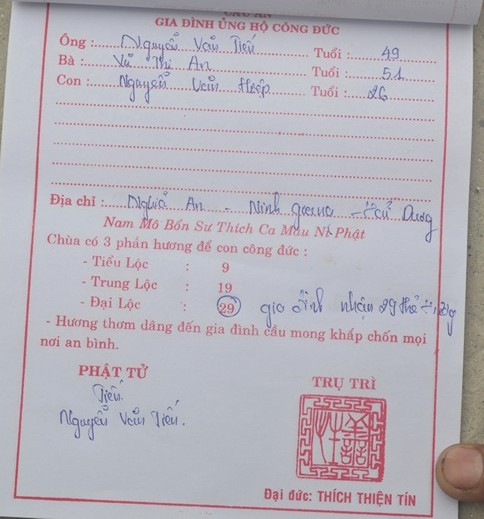 CẦU AN
GIA ĐÌNH ỦNG HỘ CÔNG ĐỨC
Ông : Nguyễn Văn Tiến Tuổi : 49
Bà : Vũ Thị An Tuổi : 51
Con : Nguyễn Văn Hiệp Tuổi : 26
Địa chỉ : Nghĩa An - Ninh Giang - Hải Dương
Nam Mô Bổn Sư Thích Ca Mâu Ni Phật
Chùa có 3 phần hương để con công đức :
- Tiểu Lộc : 9
- Trung Lộc : 19
- Đại Lộc : 29 gia đình nhận 29 thẻ
- Hương thơm dâng đến gia đình cầu mong khắp chốn mọi
nơi an bình.
PHẬT TỬ
TRỤ TRÌ
Tiến
Nguyễn Văn Tiến.
Đại đức: THÍCH THIỆN TÍN